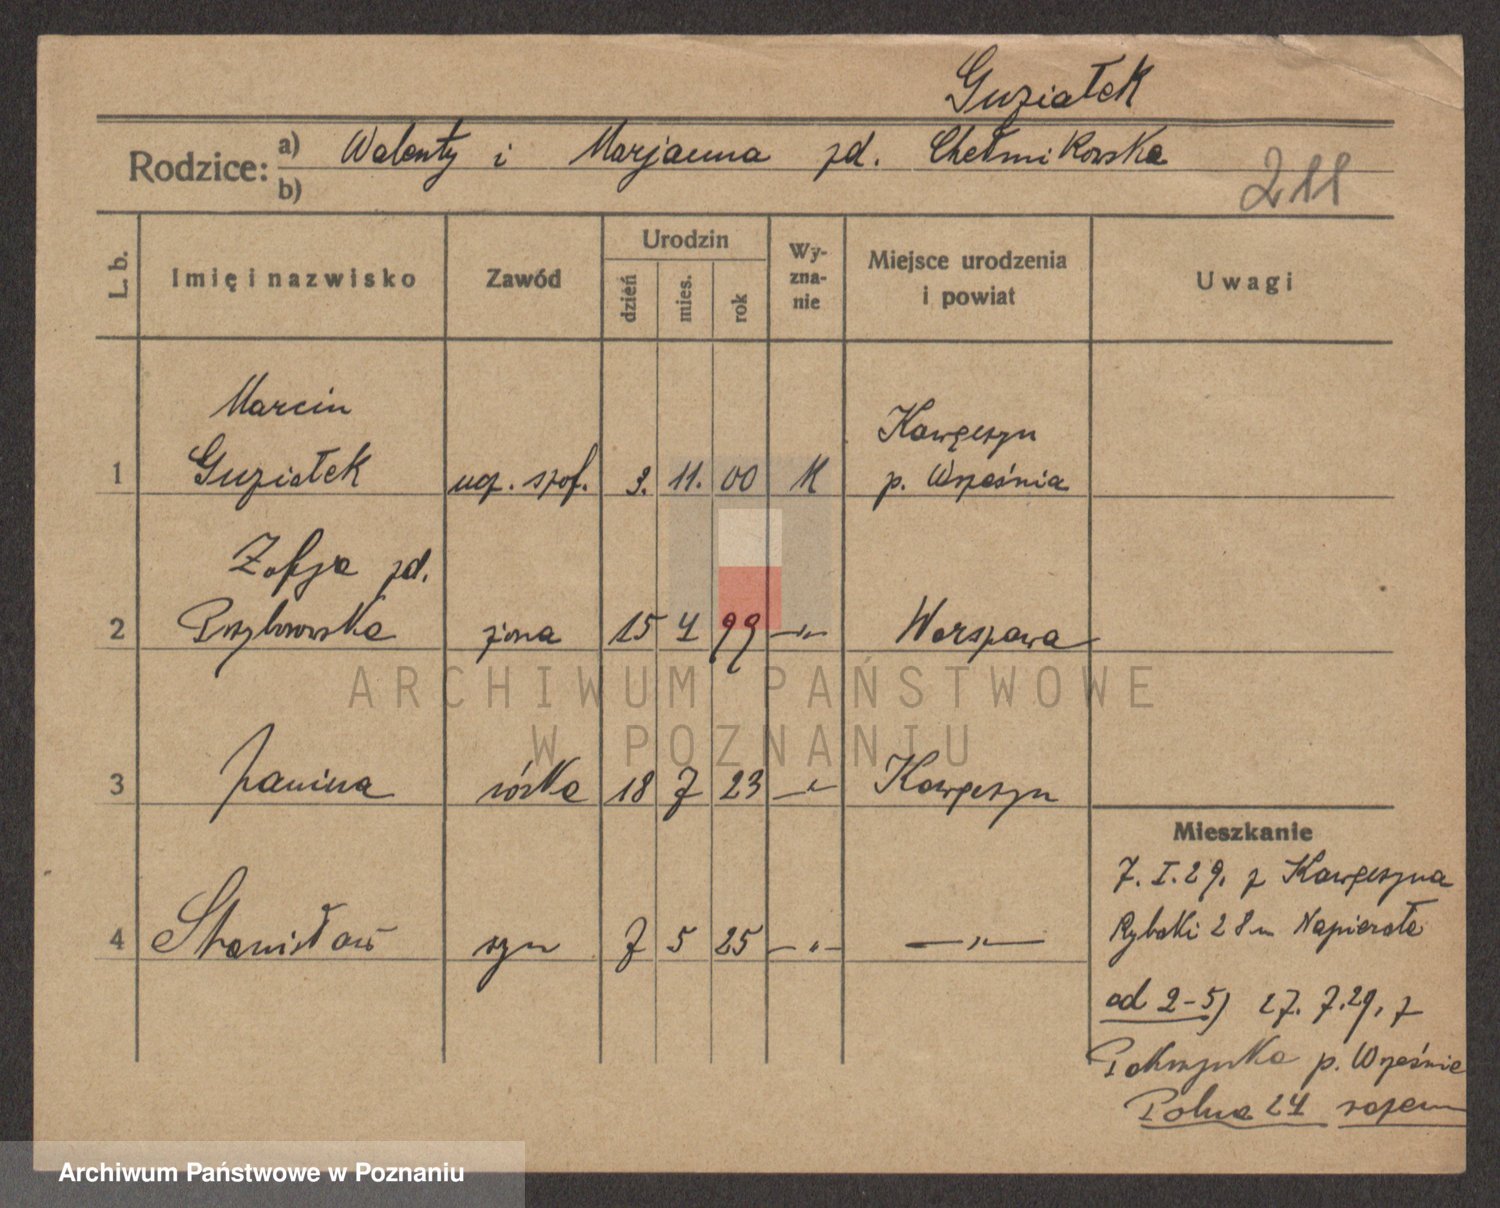 Guziałek
Rodzice: a) Walenty i Marjanna zd. Chełmikowska
b)
211
L. b.
Imię i nazwisko
Zawód
Urodzin
dzień
mies.
rok
Wy-
zna-
nie
Miejsce urodzenia
i powiat
Uwagi
Marcin
Kawęczyn
1 Guziałek ucz. szof. 3. 11. 00 K p. Września
Zofja zd.
2 Przyborowska żona 15 4 99 —„— Warszawa
ARCHIWUM PAŃSTWOWE
W POZNANIU
3 Janina córka 18 7 23 —„— Kawęczyn
Mieszkanie
7. I. 29. z Kawęczyna
4 Stanisław syn 7 5 25 —„— —„—
Rybaki 28 m Napierała
od 2-5) 27. 7. 29. z
p. Wrześnie
Polna 24 razem
Archiwum Państwowe w Poznaniu